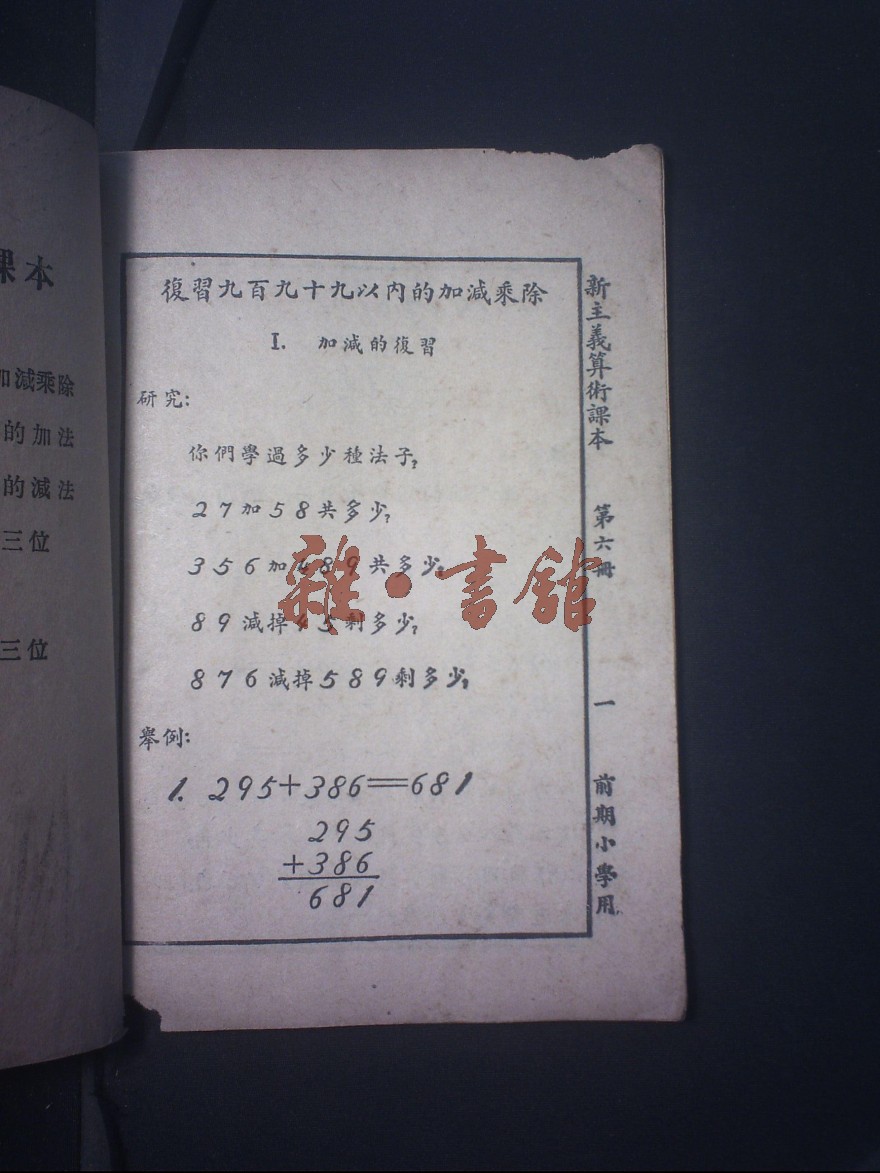 課本
加減乘除
的加法
的減法
三位
三位
復習九百九十九以內的加減乘除
I. 加減的復習
研究:
你們學過多少種法子?
27加58共多少?
356加489共多少?
89減掉45剩多少?
876減掉589剩多少?
舉例:
1. 295+386=681
295
+386
681
新主義算術課本 第六冊 一 前期小學用
雜·書館